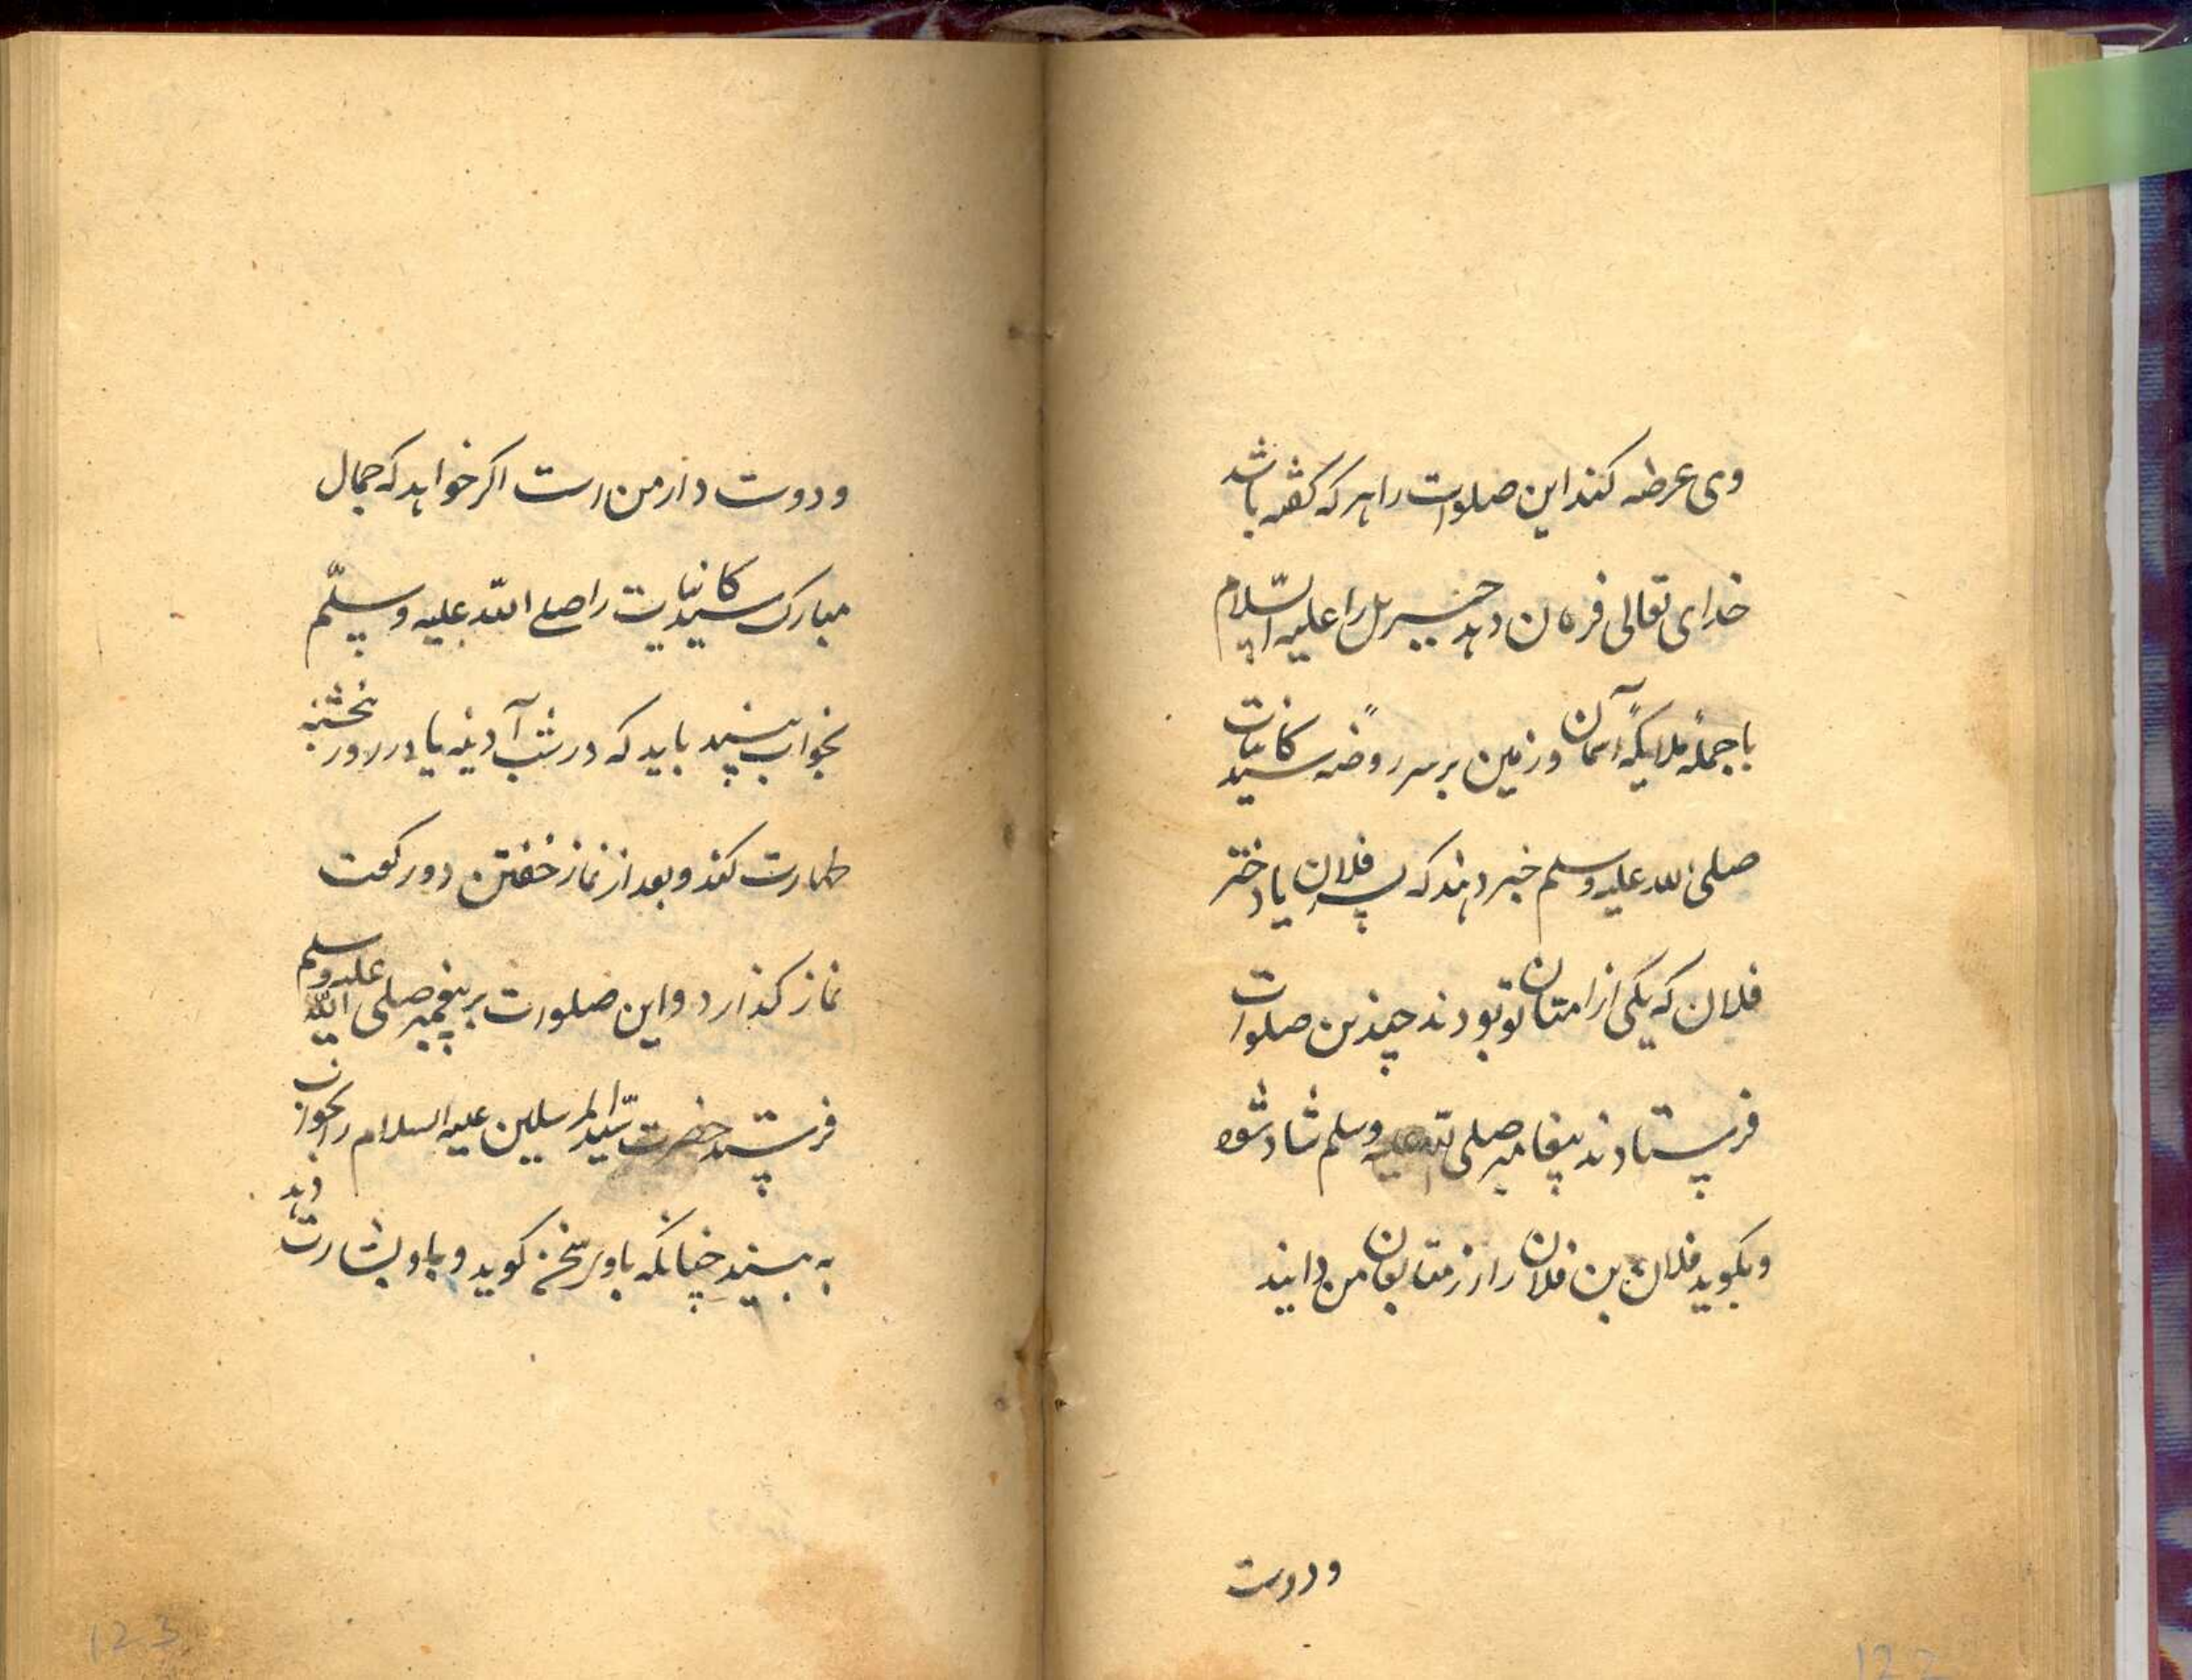 وی عرضه کنند این صلوات را هر که گفته باشد
خدای تعالی فرمان دهد جبریل را علیه السّلام
با جملهٔ ملایکهٔ آسمان و زمین بر سر روضه سید کائنات
صلی الله علیه وسلم خبر دهند که پسر فلان یا دختر
فلان که یکی از امتان تو بودند چندین صلوات
فرستادند پیغامبر صلی الله علیه وسلم شاد شود
و بگوید فلان بن فلان را از متابعان من دانید
و دوست
122
و دوست دار من است اکر خواهد که جمال
مبارک سید کائنات را صلی اللّه علیه وسلّم
بخواب بیند باید که در شب آدینه یا در روز پنجشنبه
طهارت کند و بعد از نماز خفتن دو رکعت
نماز کذارد و این صلوات بر پیغمبر صلی اللّه علیه وسلم
فرستد حضرت سیّد المرسلین علیه السلام را بخواب
به بیند چنانکه با وی سخن کوید و باو بشارت دهد
123